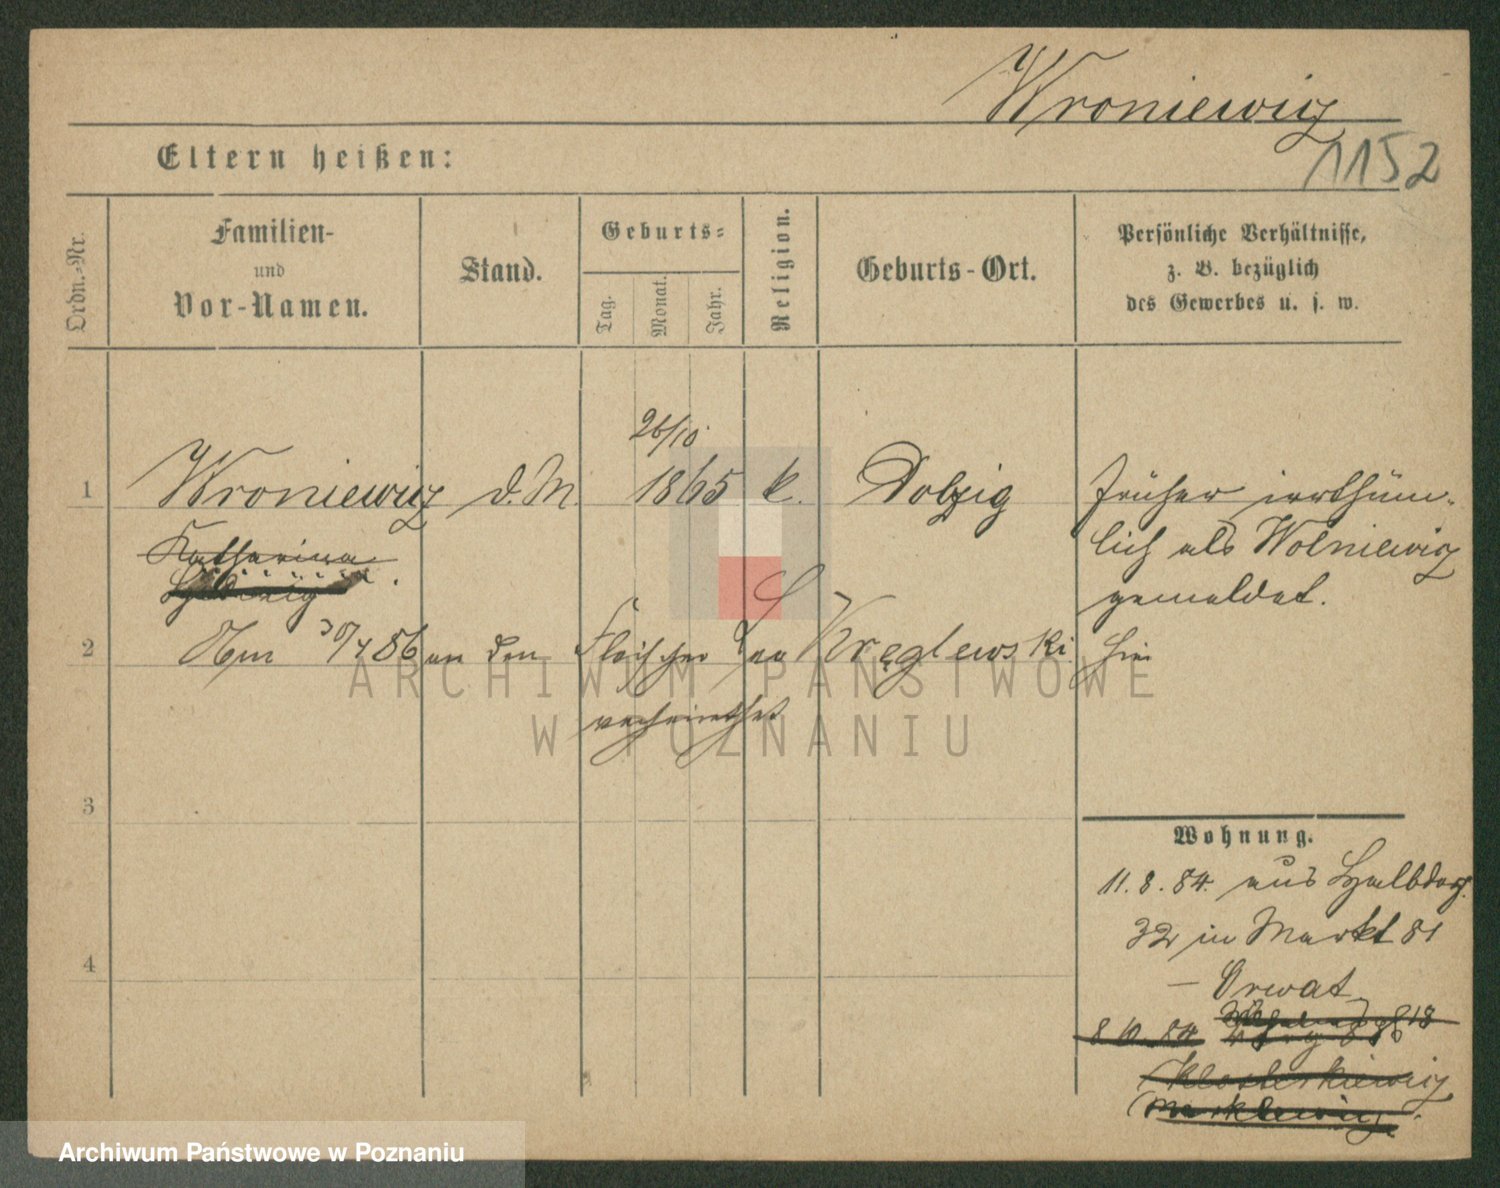 Wroniewicz
1152
Eltern heißen:
Ordn.=Nr.
Familien-
und
Vor-Namen.
Stand.
Geburts=
Tag.
Monat.
Jahr.
Religion.
Geburts-Ort.
Persönliche Verhältnisse,
z. B. bezüglich
des Gewerbes u. s. w.
26/10
1 Wroniewicz d. M. 1865 k. Dolzig früher irrthüm-
lich als Wolniewicz
gemeldet.
Katharina
Hedwig
2 Am 30/4 86 an den Fleischer Kręglewski hier
verheirathet
3
4
Wohnung.
11.8.84. aus Halbdorf
32 in Markt 81
– Orwat
8 10. 84
18
ARCHIWUM PAŃSTWOWE
W POZNANIU
Archiwum Państwowe w Poznaniu